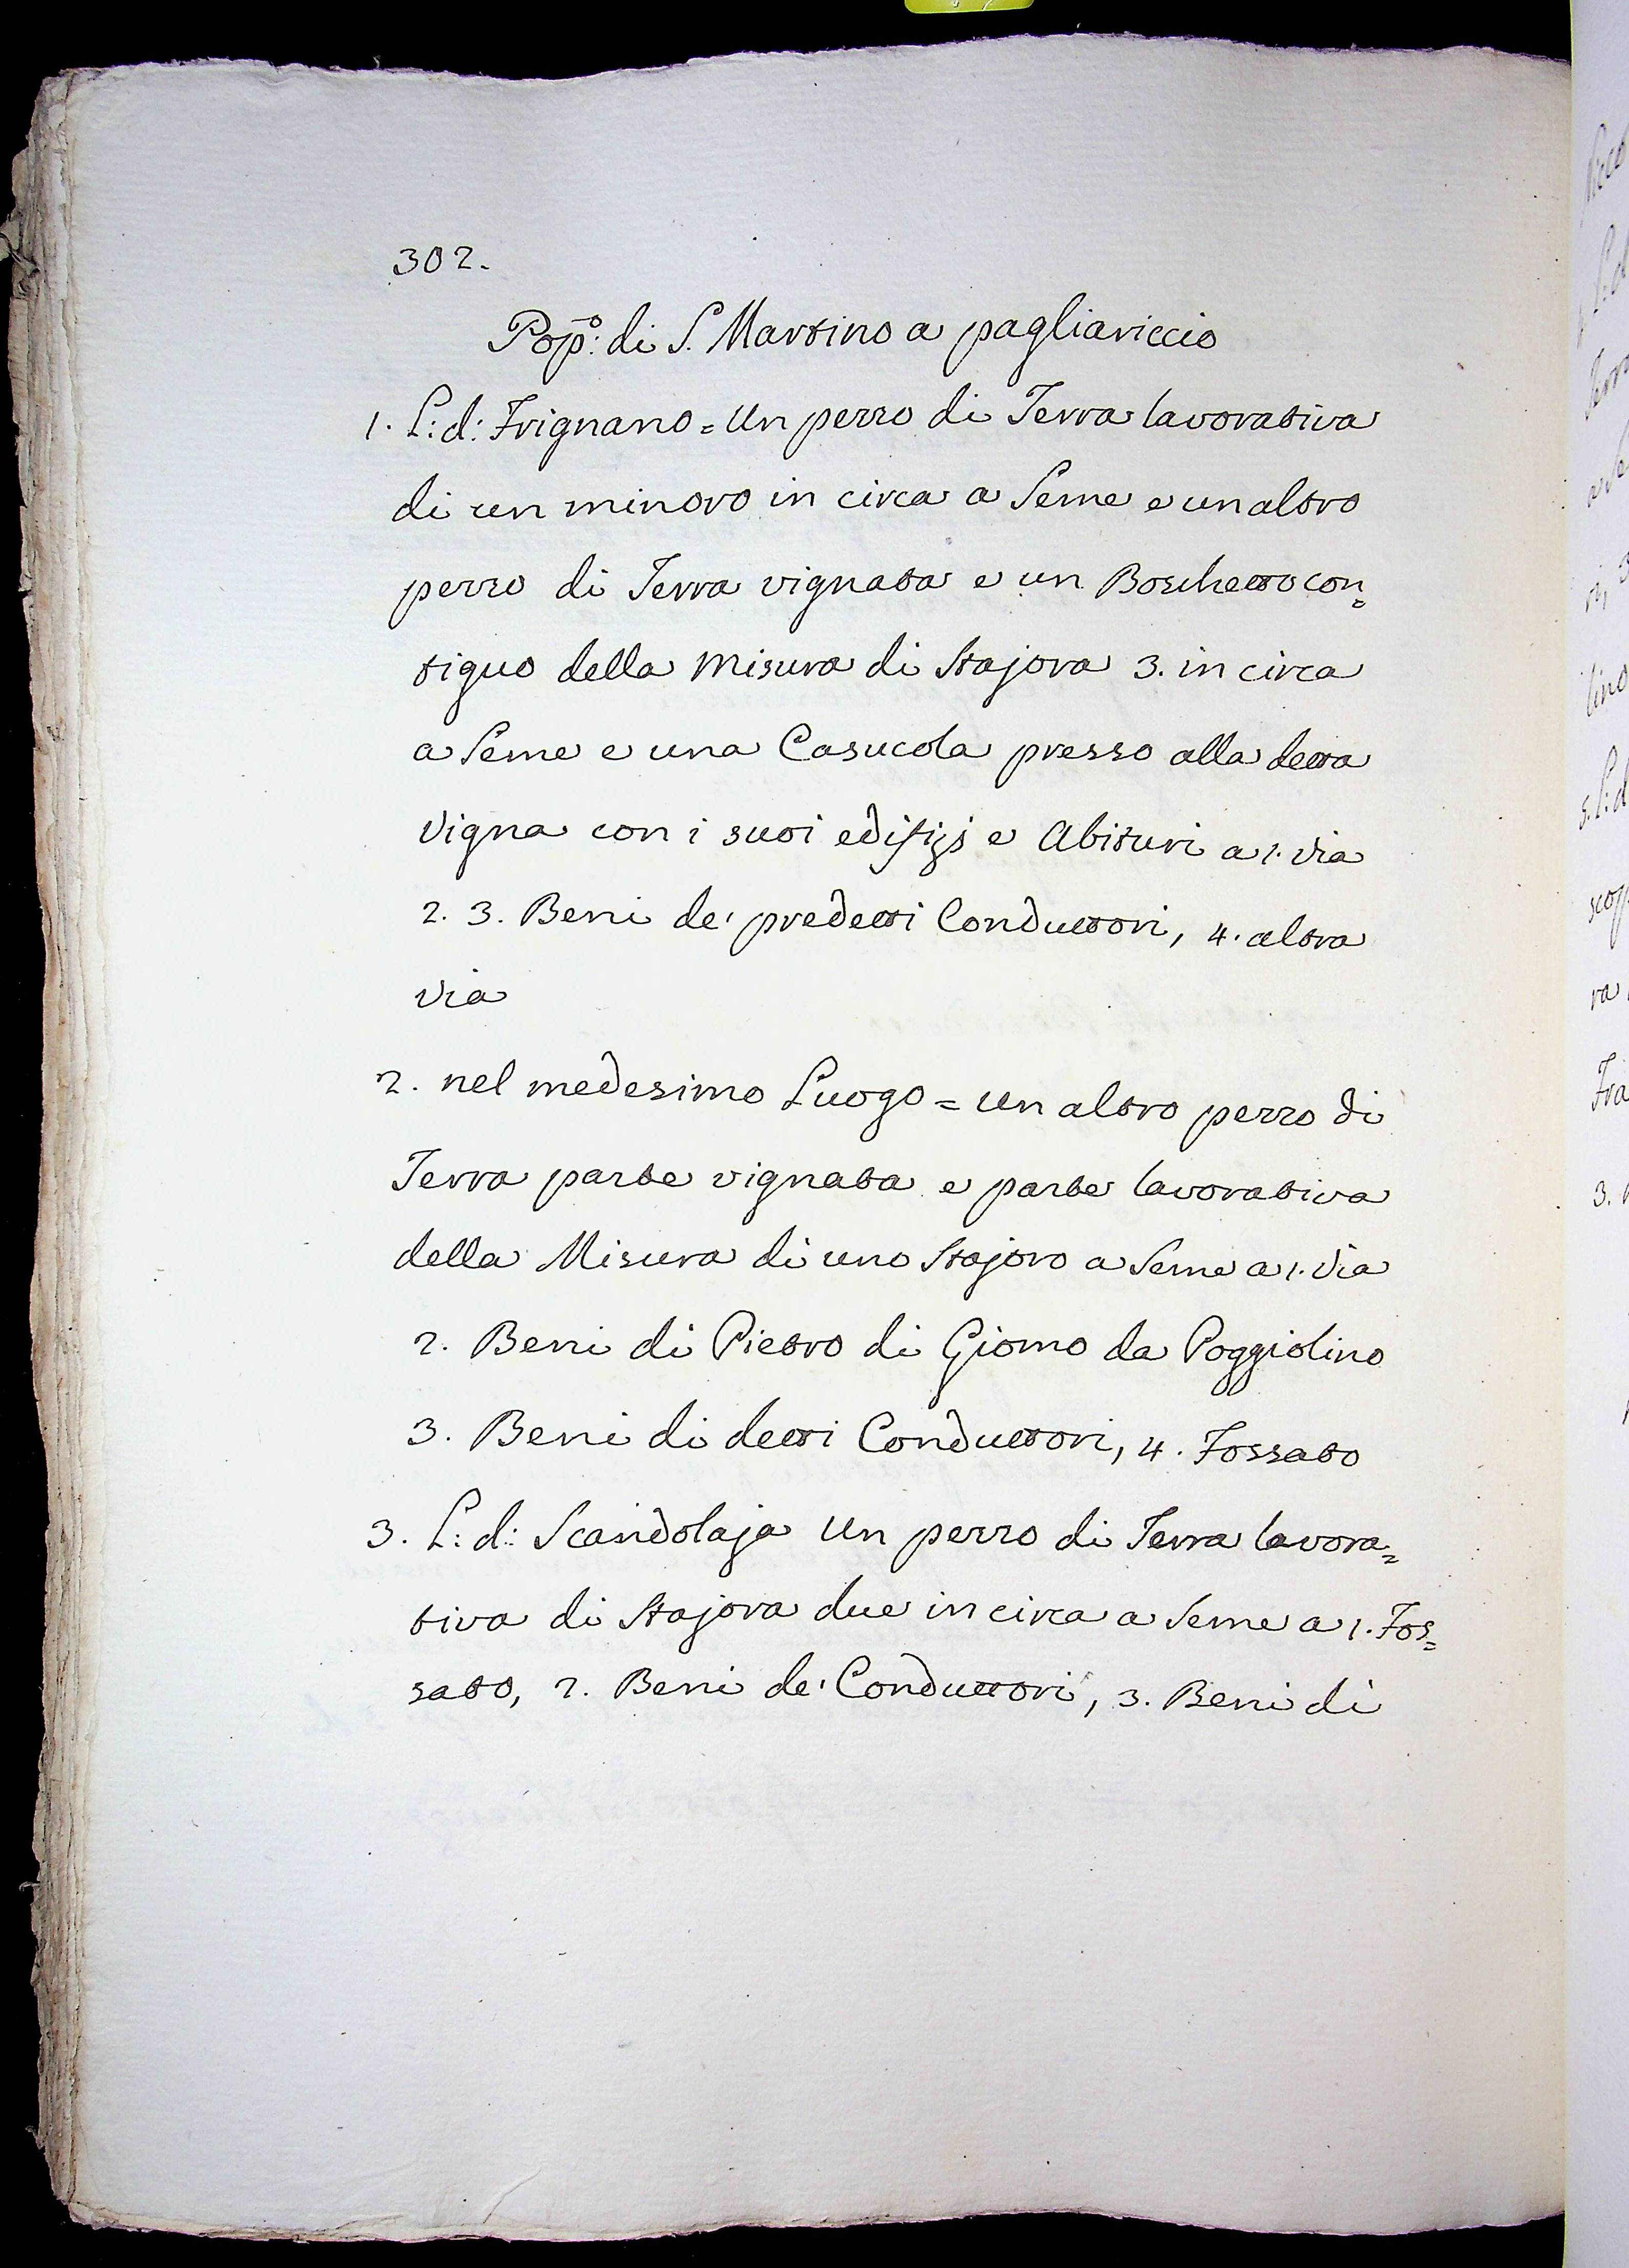 302.
Pop:º di S. Martino a pagliariccio
1. L: d: Frignano = Un pezzo di Terra lavorativa
di un minoro in circa a Seme e un altro
pezzo di Terra vignata e un Boschetto con=
tiguo della Misura di Stajora 3. in circa
a Seme e una Casucola presso alla detta
Vigna con i suoi edifizj e Abituri a 1. Via
2. 3. Beni de' predetti Conduttori, 4. altra
Via
2. nel medesimo Luogo = un altro pezzo di
Terra parte vignata e parte lavorativa
della Misura di uno Stajoro a Seme a 1. Via
2. Beni di Pietro di Giomo da Poggiolino
3. Beni di detti Conduttori, 4. Fossato
3. L: d: Scandolaja Un pezzo di Terra lavora=
tiva di Stajora due in circa a Seme a 1. Fos=
sato, 2. Beni de' Conduttori, 3. Beni di